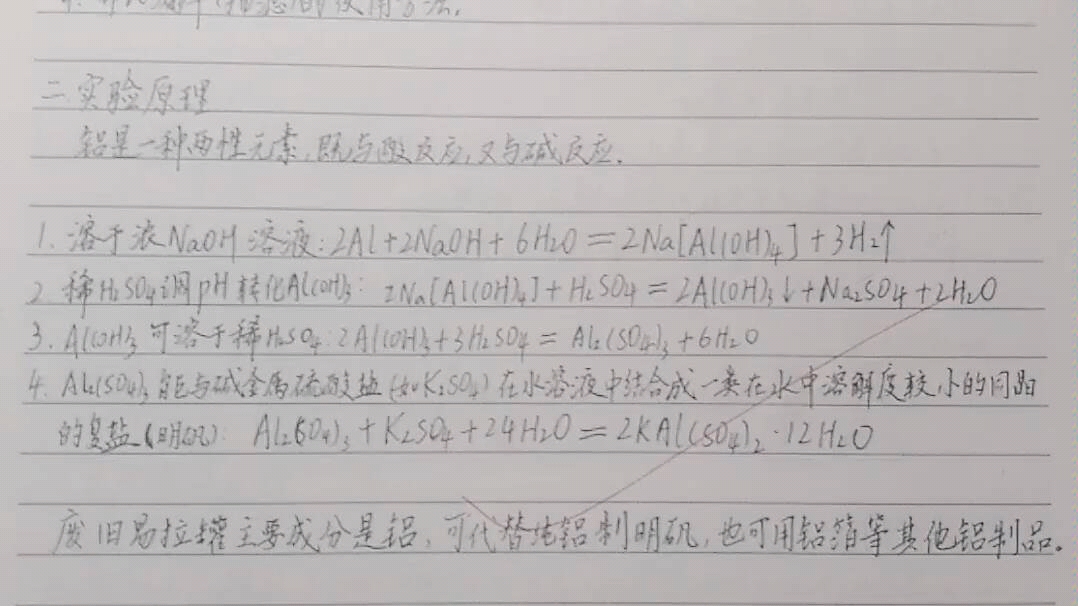 的使用方法.
二.实验原理
铝是一种两性元素,既与酸反应,又与碱反应.
1.溶于浓NaOH溶液:2Al+2NaOH+6H2O=2Na[Al(OH)4]+3H2↑
2.稀H2SO4调pH转化Al(OH)3: 2Na[Al(OH)4]+H2SO4=2Al(OH)3↓+Na2SO4+2H2O
3.Al(OH)3可溶于稀H2SO4:2Al(OH)3+3H2SO4=Al2(SO4)3+6H2O
4.Al2(SO4)3能与碱金属硫酸盐(如K2SO4)在水溶液中结合成一类在水中溶解度较小的同晶
的复盐(明矾): Al2(SO4)3+K2SO4+24H2O=2KAl(SO4)2·12H2O
废旧易拉罐主要成分是铝,可代替纯铝制明矾,也可用铝箔等其他铝制品。